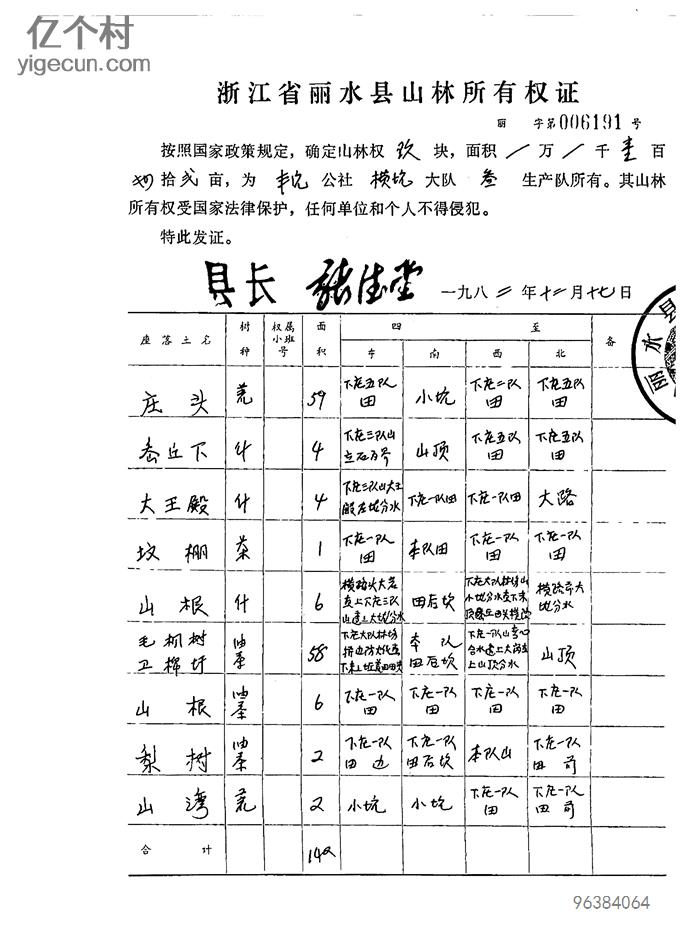 亿个村
yigecun.com
浙江省丽水县山林所有权证
丽 字第006191号
按照国家政策规定，确定山林权 玖 块，面积 / 万 / 千 壹 百
肆拾贰亩，为 公社 横坑 大队 叁 生产队所有。其山林
所有权受国家法律保护，任何单位和个人不得侵犯。
特此发证。
县长 张佳堂 一九八二年十二月十七日
座落土名 树种 权属小班号 面积 四至 备
东 南 西 北
丽水县
庄头 荒 59 下 五队田 小坑 下 二队田 下 五队田
丘下 什 4 下 三队山 山顶 下 五队田 下 五队田
大王殿 什 4 下 三队山大王殿 分水 下 一队田 下 一队田 大路
坟棚 茶 1 下 一队田 本队田 下 一队田 下 一队田
山根 什 6 田后坎 分水
毛桐树 油茶 58 下 大队林场 本队田后坎 下 一队山 合水 上山顶分水 山顶
山根 油茶 6 下 一队田 下 一队田 下 一队田 下 一队田
梨树 油茶 2 下 一队田边 下 一队田后坎 本队山 下 一队田
山湾 荒 2 小坑 小坑 下 一队田 下 一队田
合计 142
96384064